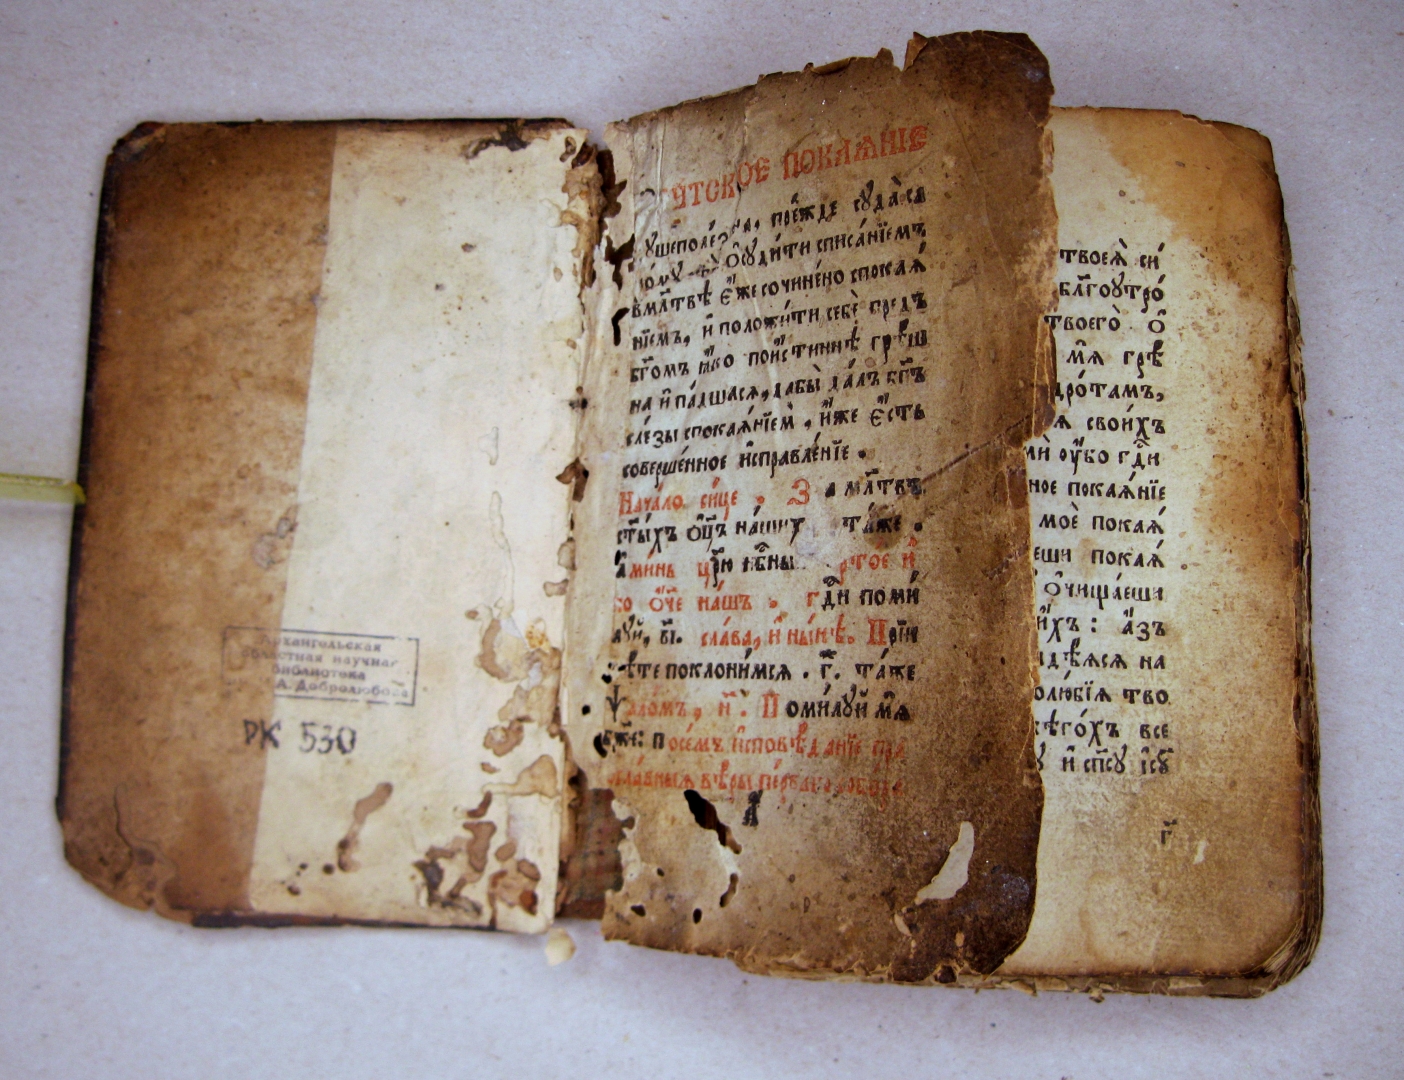 Архангельская
областная научная
библиотека
А. Добролюбова
РК 530
покаѧнїе
прéжде сꙋда̀ сѧ
ѡ҆сꙋди́ти списа́нїемъ
вмл҃твѣ є҆́же сочинено спокаѧ́
нїемъ, и҆ положи́ти себѐ предъ
бг҃омъ ꙗ҆́ко пои́стиннѣ грѣш
на и҆ па́дшасѧ, дабы̀ да́лъ бг҃ъ
сле́зы спокаѧ́нїемъ, и҆́же є҆́сть
соверше́нное и҆справле́нїе.
Нача́ло си́це. За мл҃твъ
ст҃ы́хъ ѻ҆ц҃ъ на́шихъ та́же.
а҆ми́нь цр҃ю̀ нбⷭ҇ны
ѻ҆́ч҃е на́шъ. гдⷭ҇и поми́
лꙋй, в҃і. сла́ва, и҆ ны́нѣ. Прїи
поклони́мсѧ. г҃. та́же
н҃. Поми́лꙋй мѧ̀
бж҃е: посе́мъ и҆сповѣ́данїе пра
вѣ́ры
а҃
твоеѧ̀ си́
бл҃гоꙋтро́
твоегѡ̀ ѡ҆
мѧ̀ грѣ́
дро́тамъ,
свои́хъ
ѹ҆́бо гдⷭ҇и
ное покаѧ́нїе
моѐ покаѧ́
еши покаѧ́
ѡ҆чища́еши
и҆́хъ: а҆́зъ
дѣ́ѧсѧ на
олю́бїѧ тво
ѣго́хъ все
и҆ сп҃сꙋ і҆сꙋ
г҃